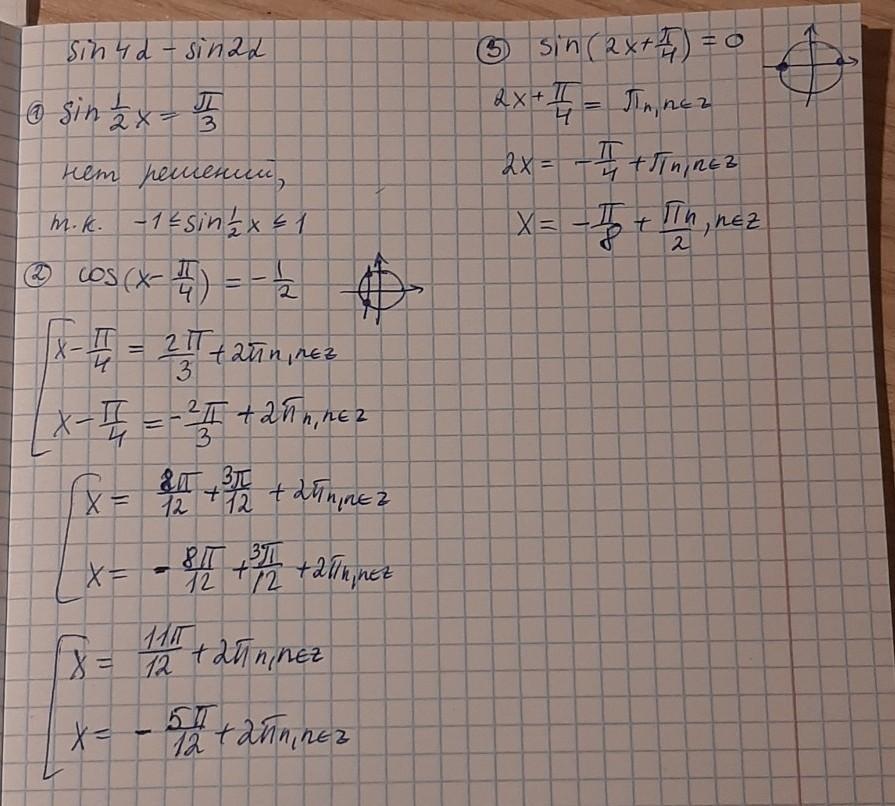 sin4α - sin2α
① sin 1/2 x = π/3
нет решений,
т.к. -1 ≤ sin 1/2 x ≤ 1
② cos(x - π/4) = - 1/2
x - π/4 = 2π/3 + 2πn, n∈z
x - π/4 = - 2π/3 + 2πn, n∈z
x = 8π/12 + 3π/12 + 2πn, n∈z
x = - 8π/12 + 3π/12 + 2πn, n∈z
x = 11π/12 + 2πn, n∈z
x = - 5π/12 + 2πn, n∈z
③ sin(2x + π/4) = 0
2x + π/4 = πn, n∈z
2x = - π/4 + πn, n∈z
x = - π/8 + πn/2, n∈z